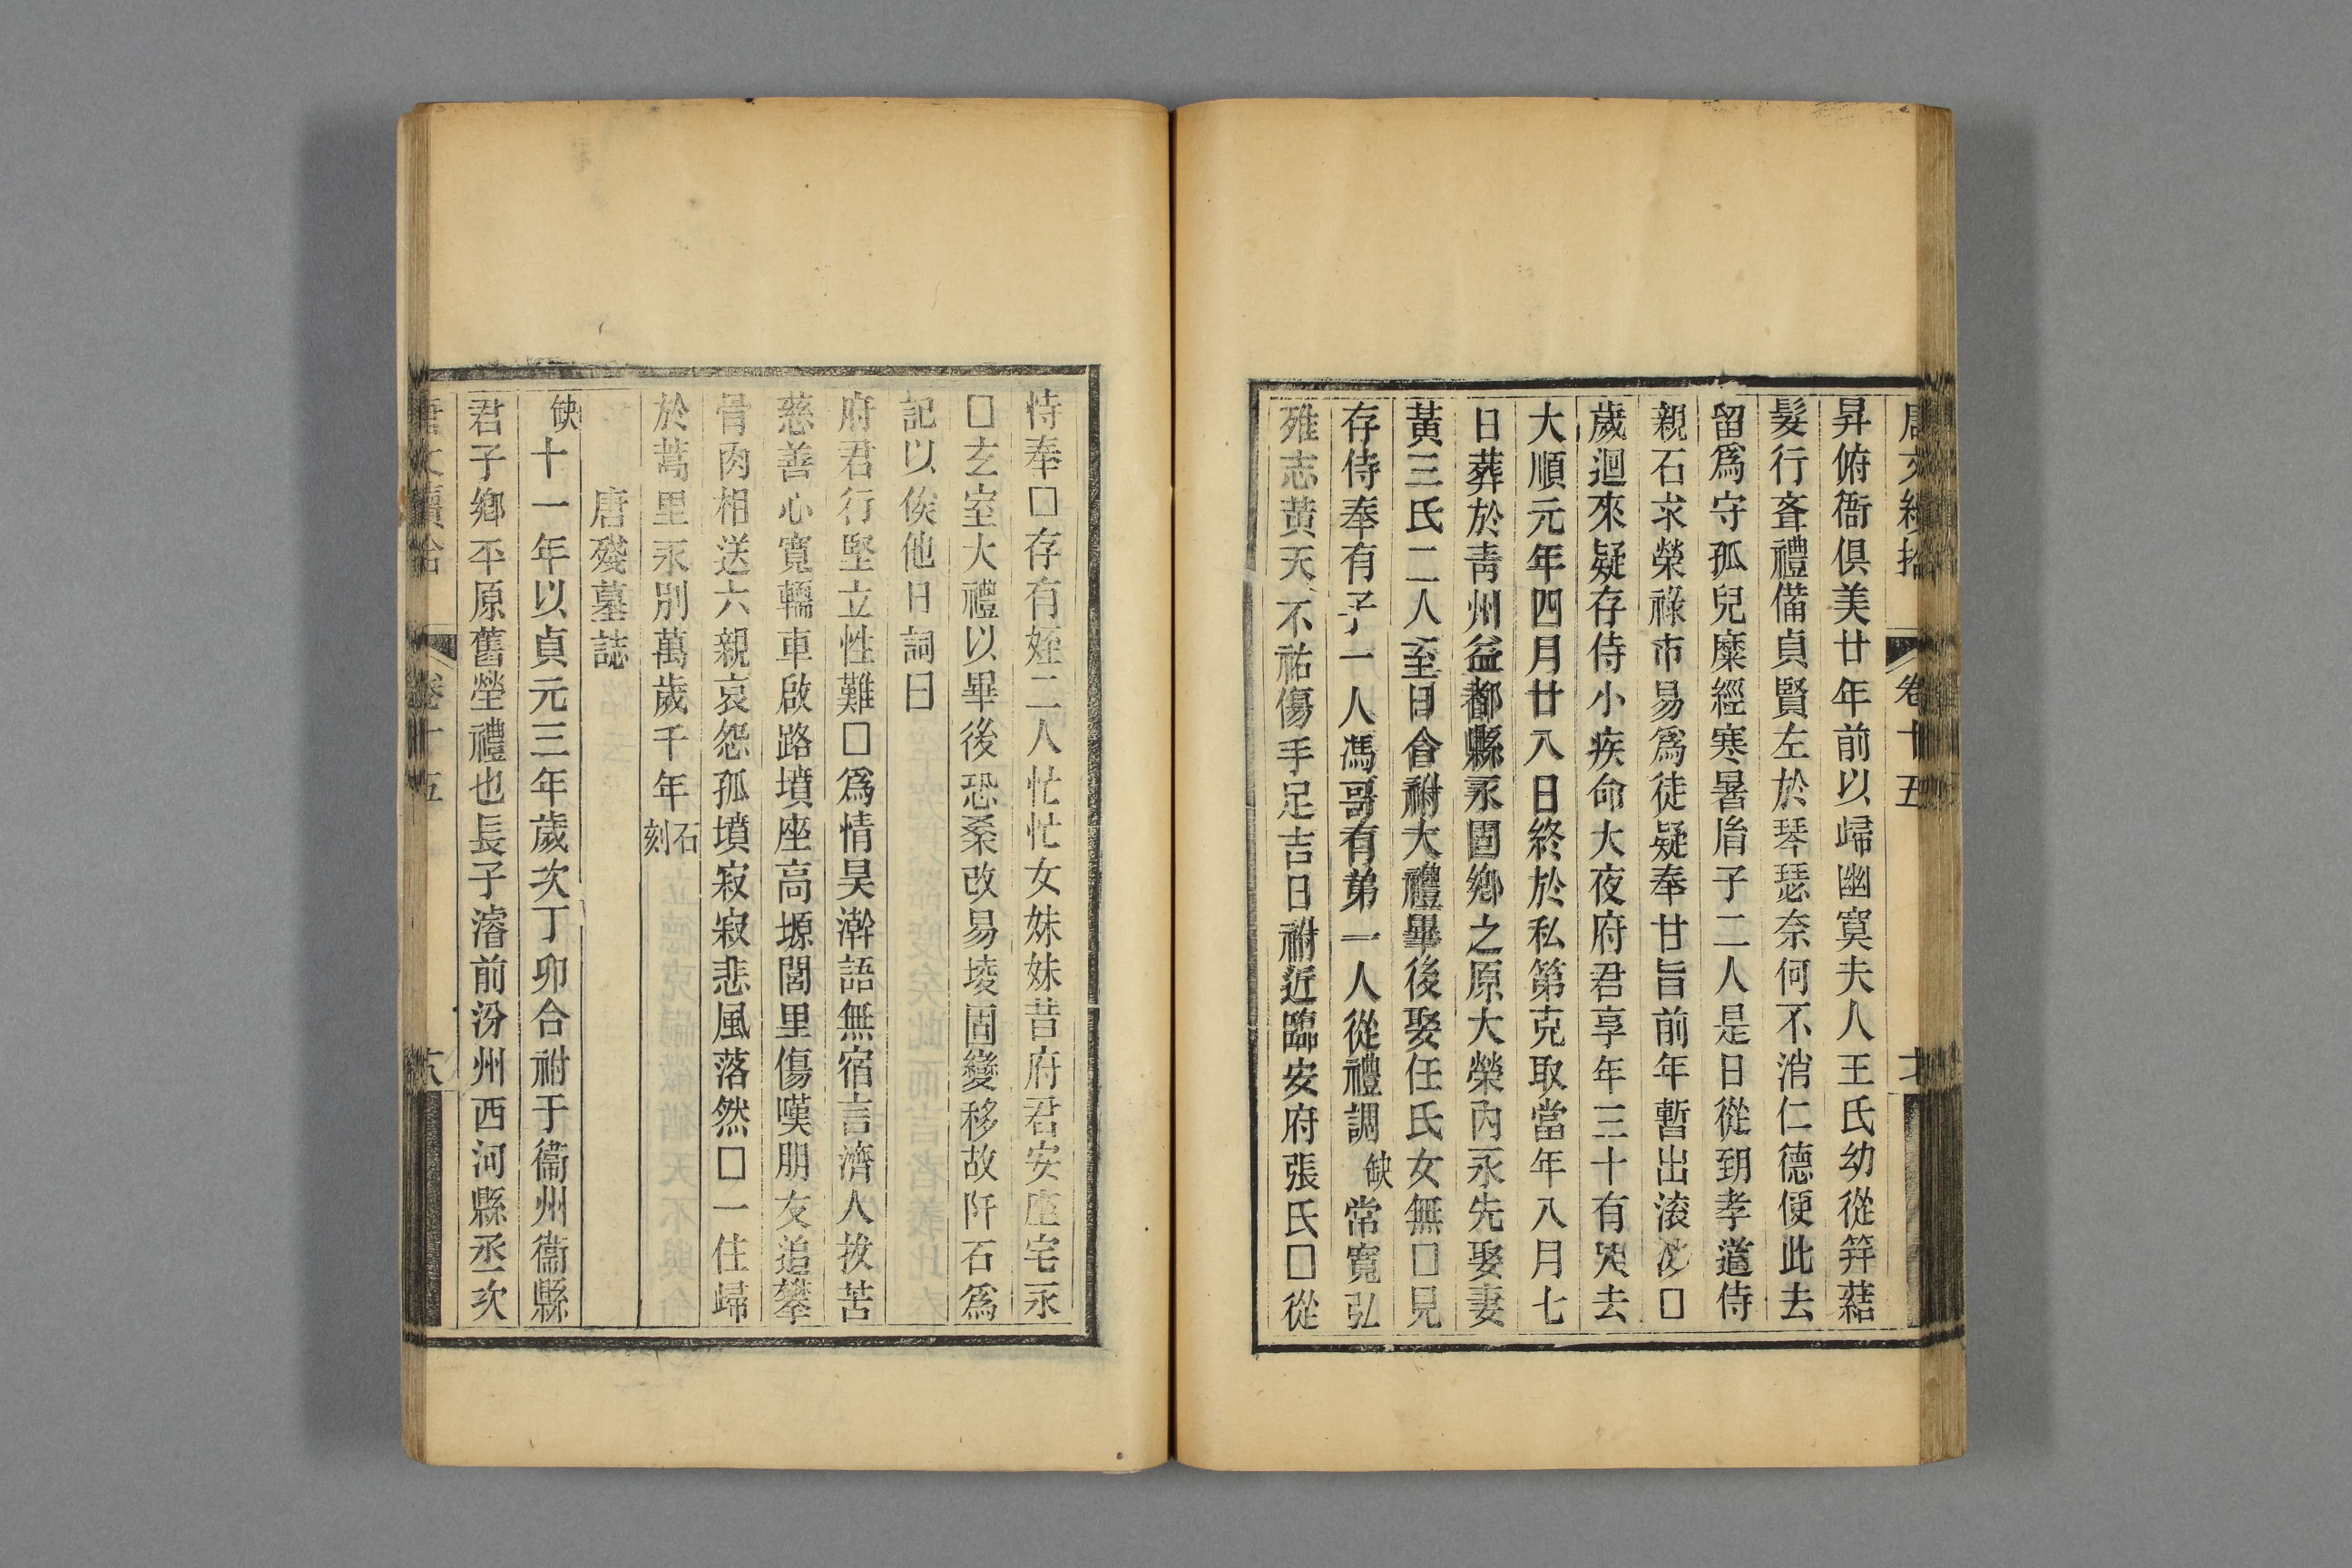 唐文續拾 卷十五
昇俯衙俱美廿年前以歸幽㝠夫人王氏幼從笄䓺
髮行夅禮備貞賢左於琴瑟奈何不消仁德便此去
留爲守孤兒糜經寒暑㫺子二人是日從玥孝邎侍
親石求榮祿市易爲徒疑奉甘旨前年暫出滚波□
歲迴來疑存侍小疾命大夜府君享年三十有哭去
大順元年四月廿八日終於私第克取當年八月七
日葬於靑州益都縣永固鄉之原大榮內永先娶妻
黃三氏二人至日會祔大禮畢後娶任氏女無□見
存侍奉有子一人馮哥有弟一人從禮調缺常寬弘
殐志黃天不祐傷手足吉日祔近臨安府張氏□從
恃奉□存有姪二人忙忙女妹妹昔府君安座宅永
□玄室大禮以畢後恐桑改易堎固變移故阡石爲
記以俟他日詞曰
府君行堅立性難□爲情昊澣語無宿言濟人拔苦
慈善心寬轜車啟路墳座高塬閭里傷嘆朋友追攀
骨肉相送六親哀怨孤墳寂寂悲風落然□一住歸
於蒿里永別萬歲千年 石刻
唐殘墓誌
缺十一年以貞元三年歲次丁卯合祔于衞州衞縣
君子鄉平原舊塋禮也長子濬前汾州西河縣丞次
唐文續拾 卷十五 六